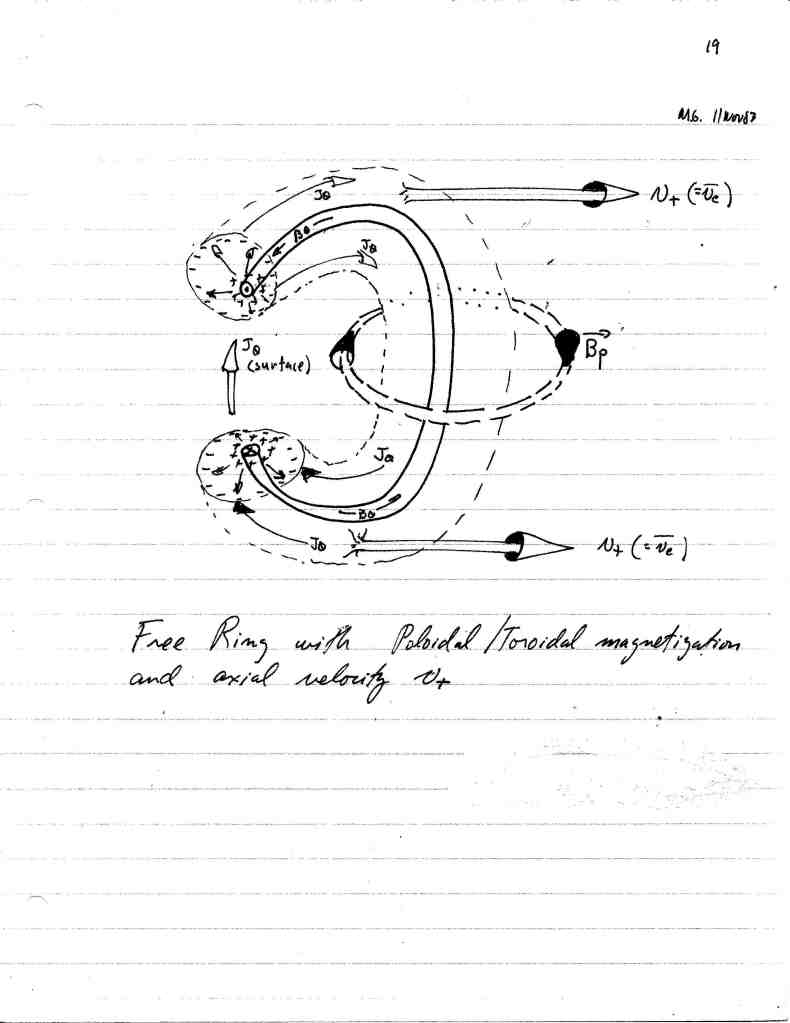 19
M.G. 11 Nov 87
Jθ
V+ (=v̅e)
Bθ
Jθ
Jθ
(surface)
B⃗p
Jθ
Bθ
Jθ
V+ (=v̅e)
Free Ring with Poloidal/Toroidal magnetization
and axial velocity V+